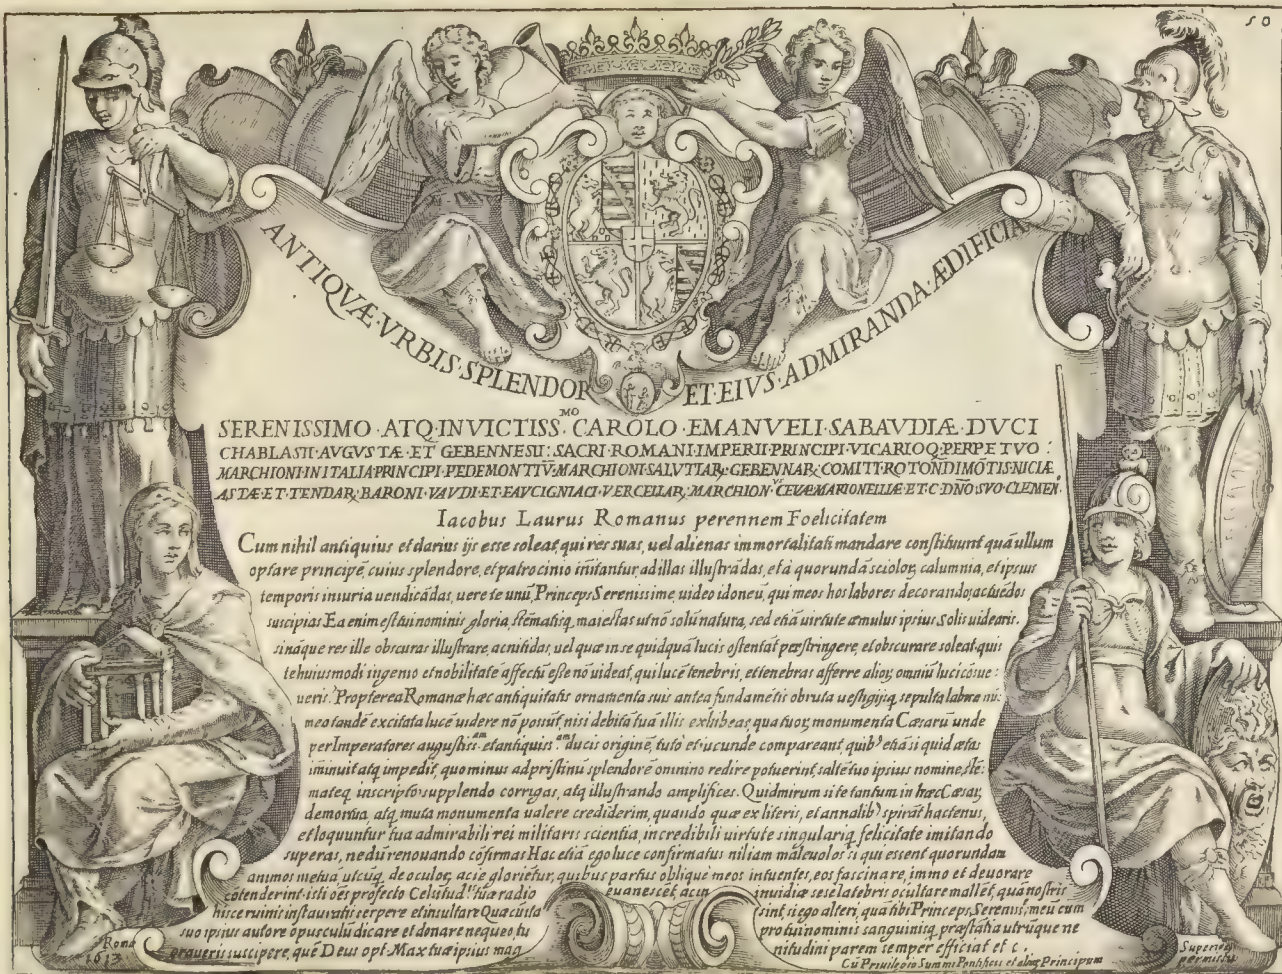 50
ANTIQVÆ·VRBIS·SPLENDOR ET·EIVS·ADMIRANDA·ÆDIFICIA
SERENISSIMO·ATQ·INVICTISS.MO CAROLO·EMANVELI·SABAVDIÆ·DVCI
CHABLASII·AVGVSTÆ·ET GEBENNESII: SACRI·ROMANI·IMPERII·PRINCIPI·VICARIOQ·PERPETVO:
MARCHIONI·IN ITALIA·PRINCIPI·PEDEMONTIV̄·MARCHIONI·SALVTIAR·GEBENNAR·COMITI·ROTONDIMŌTIS·NICIÆ
ASTÆ·ET·TENDAR·BARONI·VAVDI·ET·FAVCIGNIACI·VERCELLAR·MARCHION·CEVÆ·MARIONELLIÆ·ET·C·DÑO·SVO·CLEMEN.
Iacobus Laurus Romanus perennem Foelicitatem
Cum nihil antiquius et darius ijs esse soleat, qui res suas, uel alienas immortalitati mandare constituunt quā ullum
optare principē, cuius splendore, et patrocinio initantur, ad illas illustrādas, et ā quorundā scioloꝝ calumnia, et ipsius
temporis iniuria uendicādas, uere te unū, Princeps Serenissime, uideo idoneū, qui meos hos labores decorando, ac tuēdos
suscipias Ea enim est tui nominis gloria, stēmatisq, maiestas ut nō solū natura, sed etiā uirtute æmulus ipsius Solis uidearis.
sinaque res ille obscuras illustrare, ac nitidas, uel quæ in se quidquā lucis ostentāt perstringere, et obscurare soleat, quis
te huiusmodi ingenio et nobilitate affectū esse nō uideat, qui lucē tenebris, et tenebras afferre alioꝝ omniū luci cōsue:
ueris? Propterea Romanæ hæc antiquitatis ornamenta suis antea fundamētis obruta uestigijsq, sepulta labore nū.
meo tandē excitata lucē uidere nō possūt, nisi debita tua illis exhibeas, qua tuoꝝ monumenta Cæsarū unde
per Imperatores augustiss.am et antiquis.am ducis originē, tuto et iucunde compareant, quibꝰ etiā si quid ætas
iminuit atq impedit, quo minus ad pristinū splendorē omnino redire potuerint, saltē tuo ipsius nomine, stē:
mateq inscripto supplendo corrigas, atq illustrando amplifices. Quid mirum si te tantum in hæc Cæsaꝝ,
demortua, atq, muta monumenta ualere crediderim, quando quæ ex literis, et annalibꝰ spirāt hactenus,
et loquuntur tua admirabili rei militaris scientia, incredibili uirtute singulariq, felicitate imitando
superas, nedū renouando cōfirmas Hac etiā ego luce confirmatus niliam maleuolos si qui essent quorundam
animos metuā, utcuq, de oculoꝝ, acie glorietur, quibus partus oblique meos intuentes, eos fascinare, immo et deuorare
cōtenderint: isti oēs profecto Celsitud.is tuæ radio euanescet, ac in inuidiæ sese latebris ocultare mallēt, quā nostris
hisce ruinis instauratis serpere et insultare Qua cū ita sint, si ego alteri, quā tibi Princeps, Sereniss, meū cum
suo ipsius autore opusculū dicare et donare nequeo, tu pro tui nominis sanguinisq, præstātia utrūque ne
graueris suscipere, quē Deus opt. Max tuæ ipsius mag nitudini parem semper efficiat et c.
Cū Priuilegio Summi Pontificis et alioꝝ Principum
Roma
1613
Superiorū
permissu